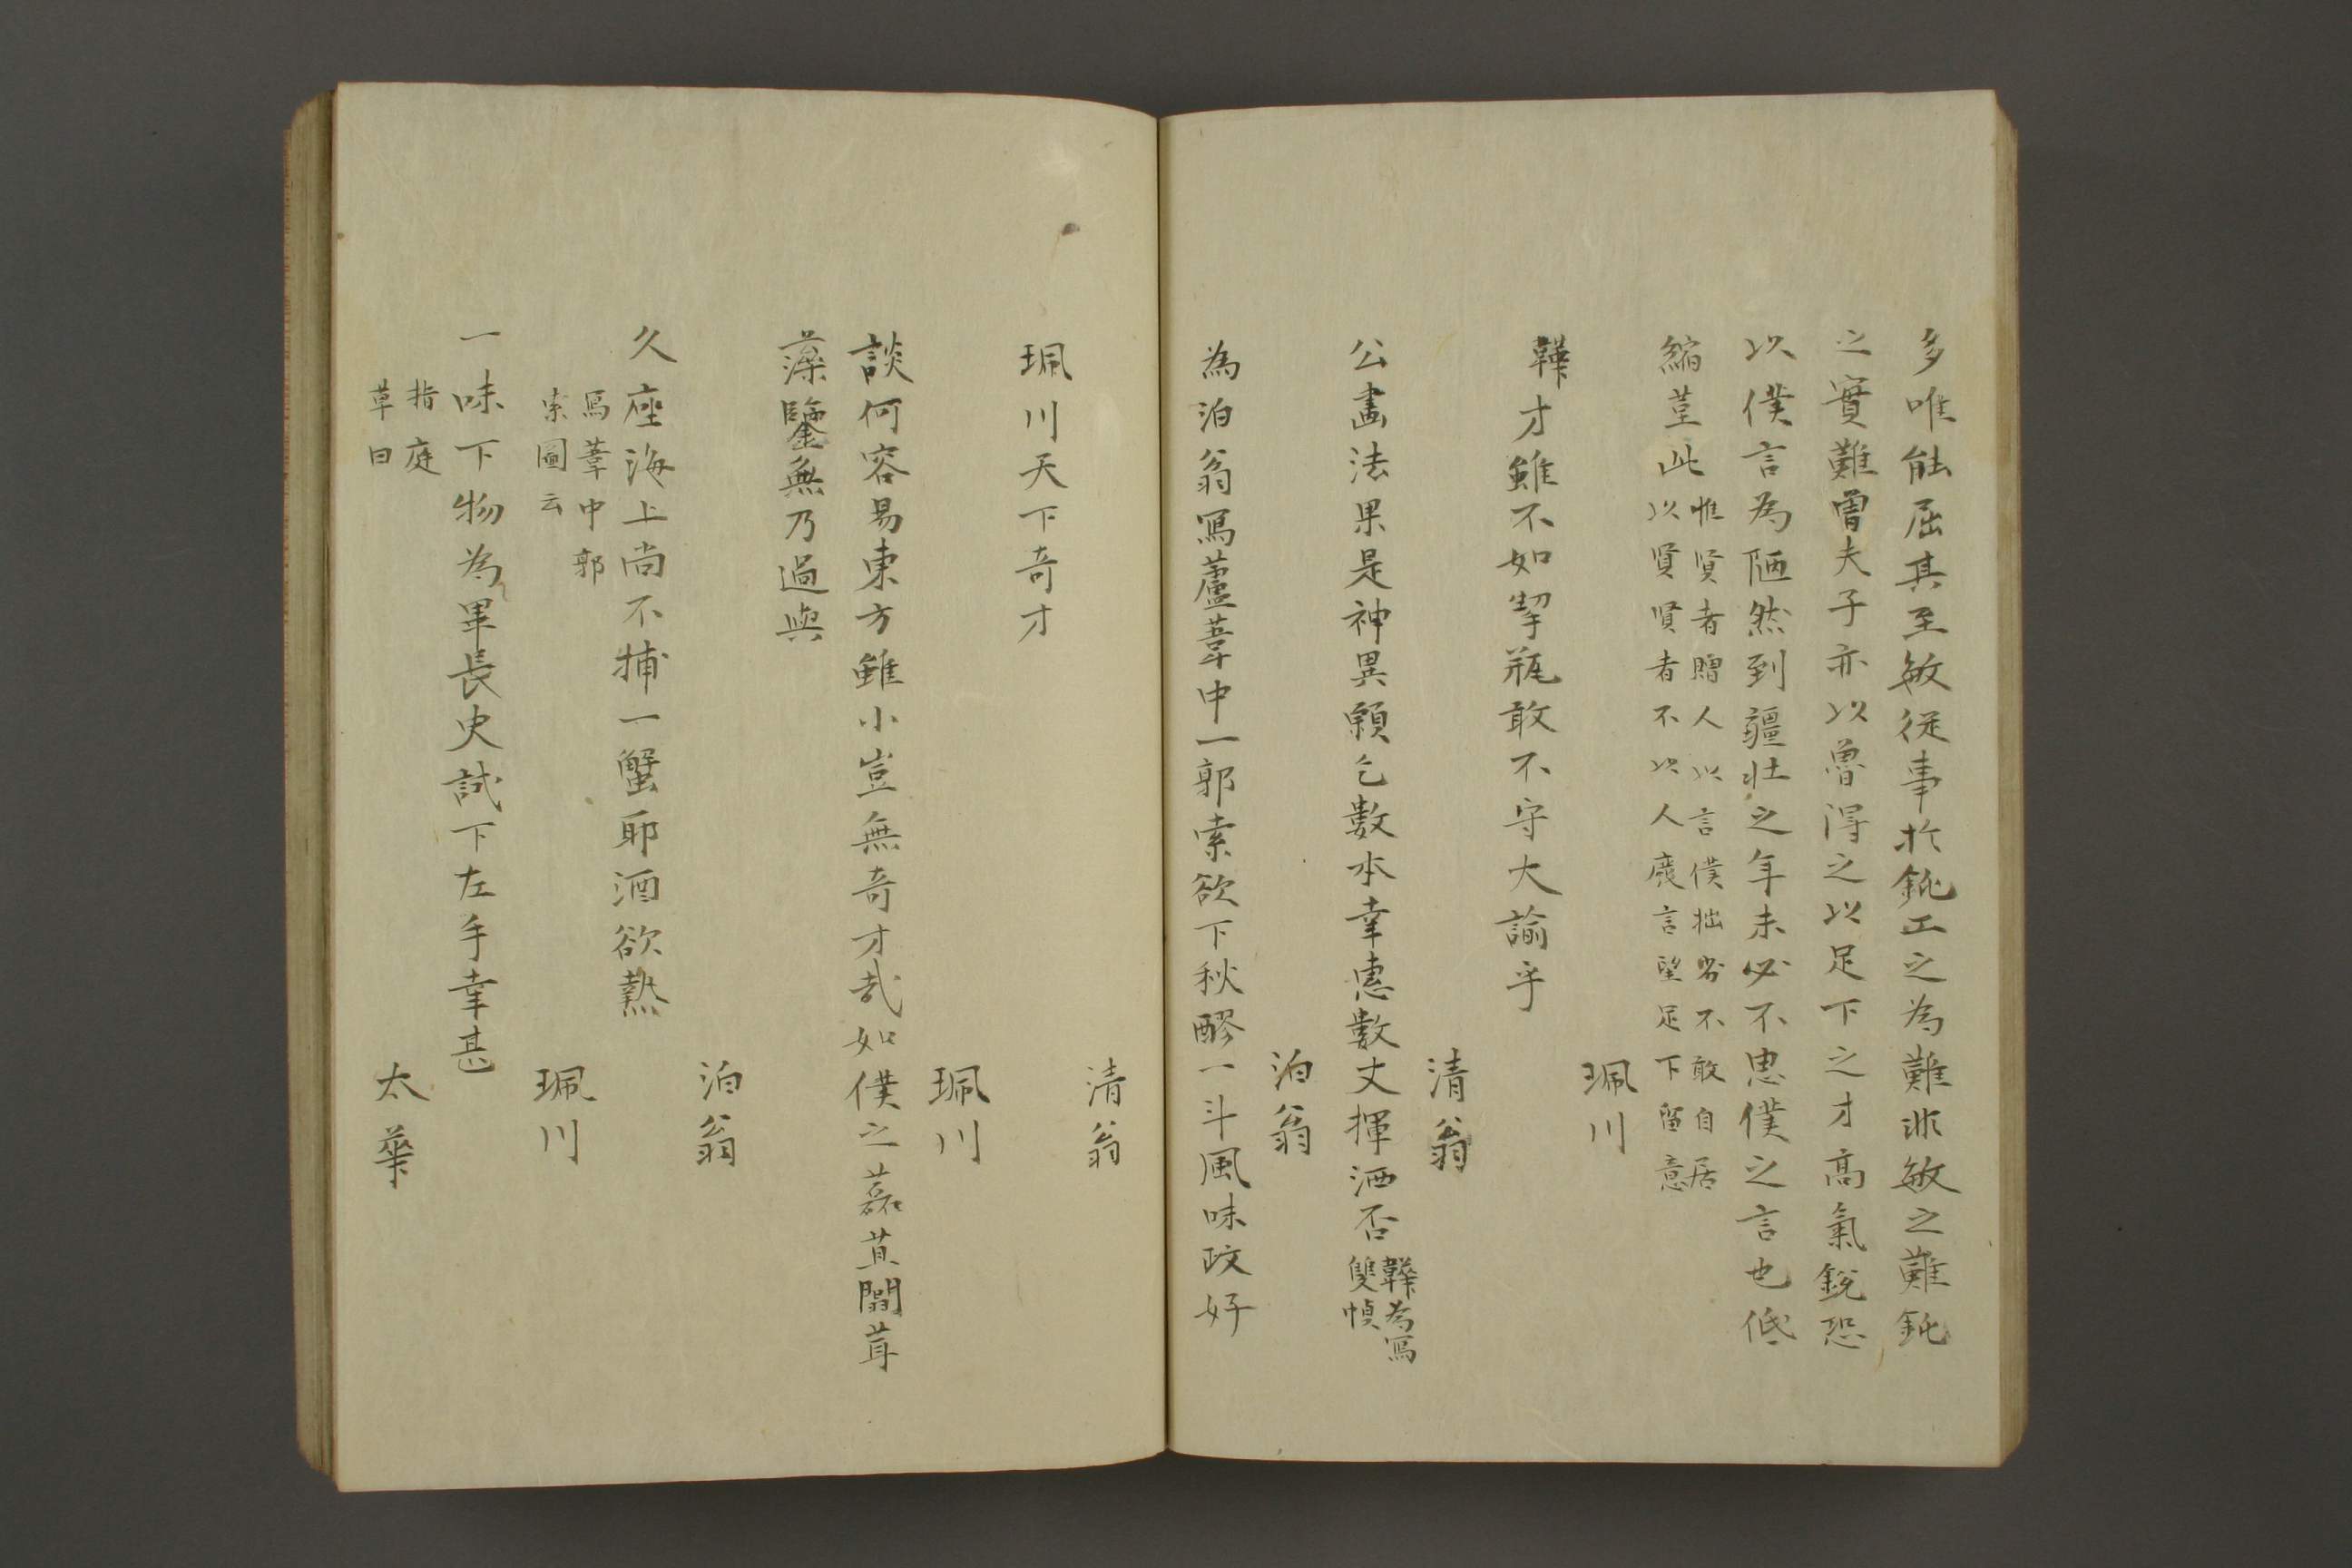 多唯能屈其至敏從事於鈍工之為難非敏之難鈍
之實難曾夫子亦以魯得之以足下之才高氣銳恐
以僕言為陋然到彊壯之年未必不思僕之言也低
縮莖此
惟賢者贈人以言僕拙劣不敢自居
以賢賢者不以人廢言望足下留意
珮川
韡才雖不如挈瓶敢不守大諭乎
清翁
公畫法果是神異願乞數本幸惠數丈揮洒否
韡為寫
雙幀
泊翁
為泊翁寫蘆葦中一郭索欲下秋醪一斗風味政好
清翁
珮川天下奇才
珮川
談何容易東方雖小豈無奇才哉如僕之蕞苴闒茸
藻鑒無乃過與
泊翁
久座海上尚不捕一蟹耶酒欲熱
寫葦中郭
索圖云
珮川
一味下物為畢長史試下左手幸甚
指庭
草曰
太華